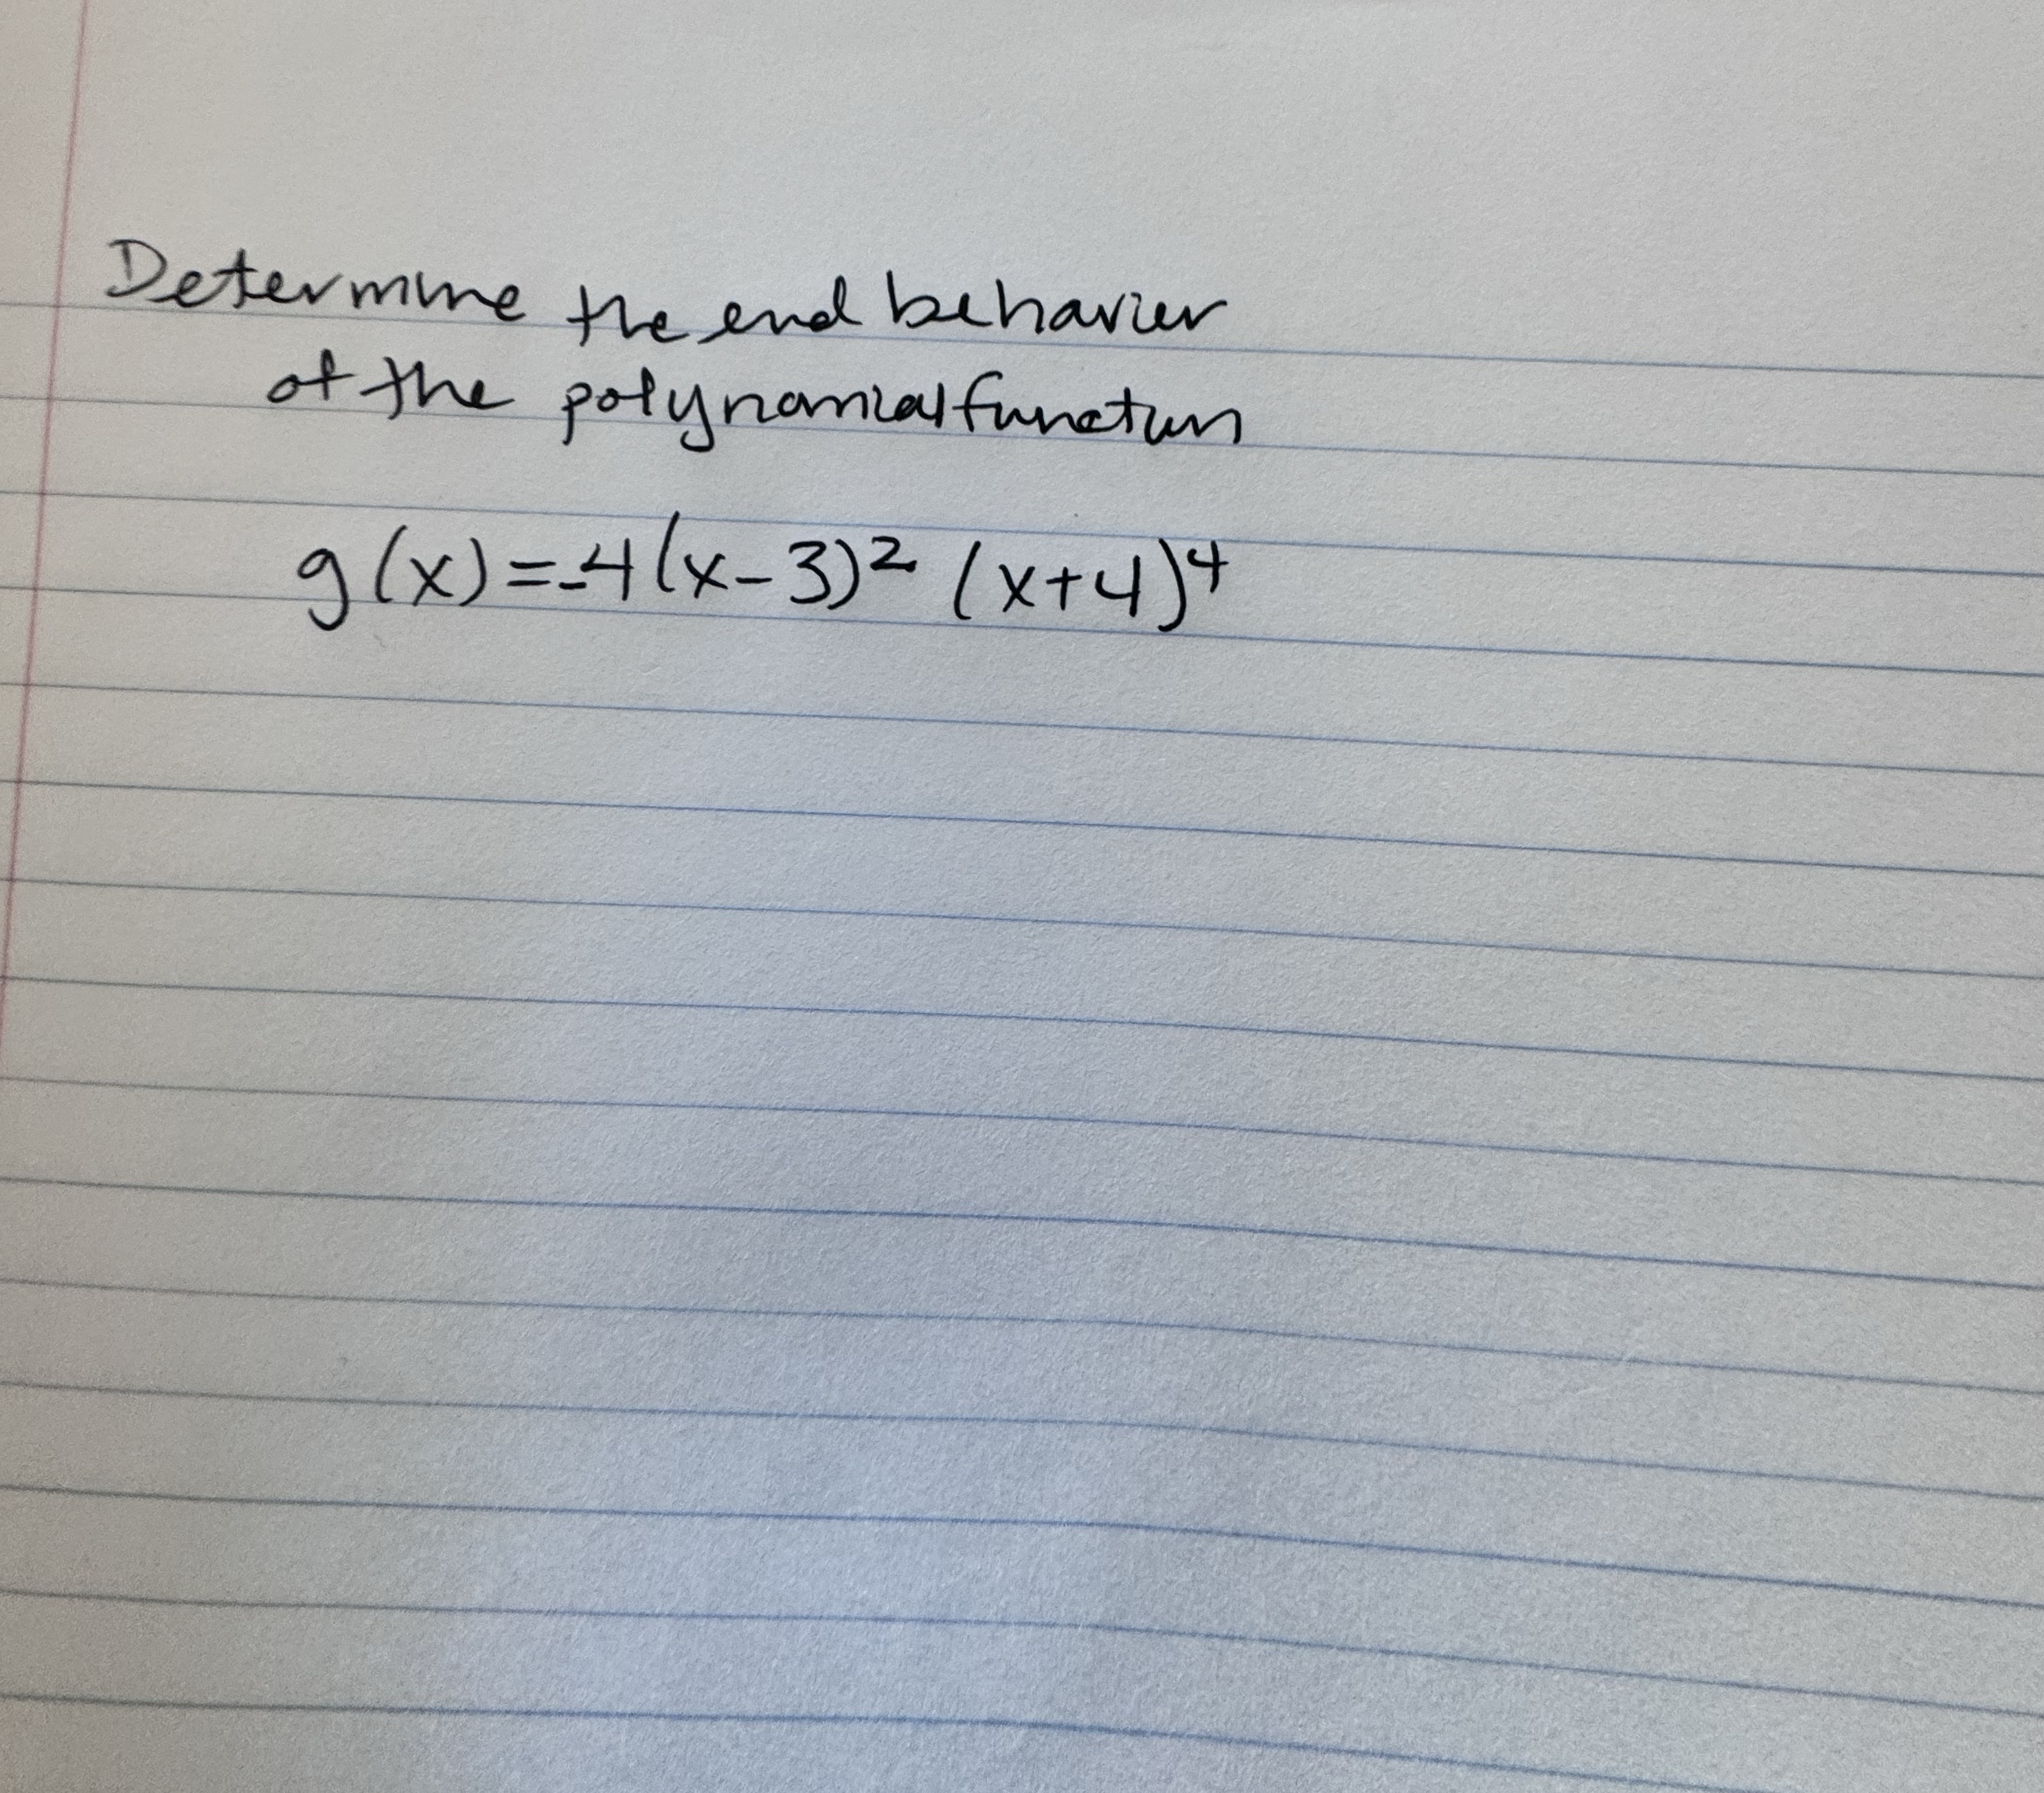 Determine the end behavior
of the polynomial function
g(x) = -4(x-3)² (x+4)⁴